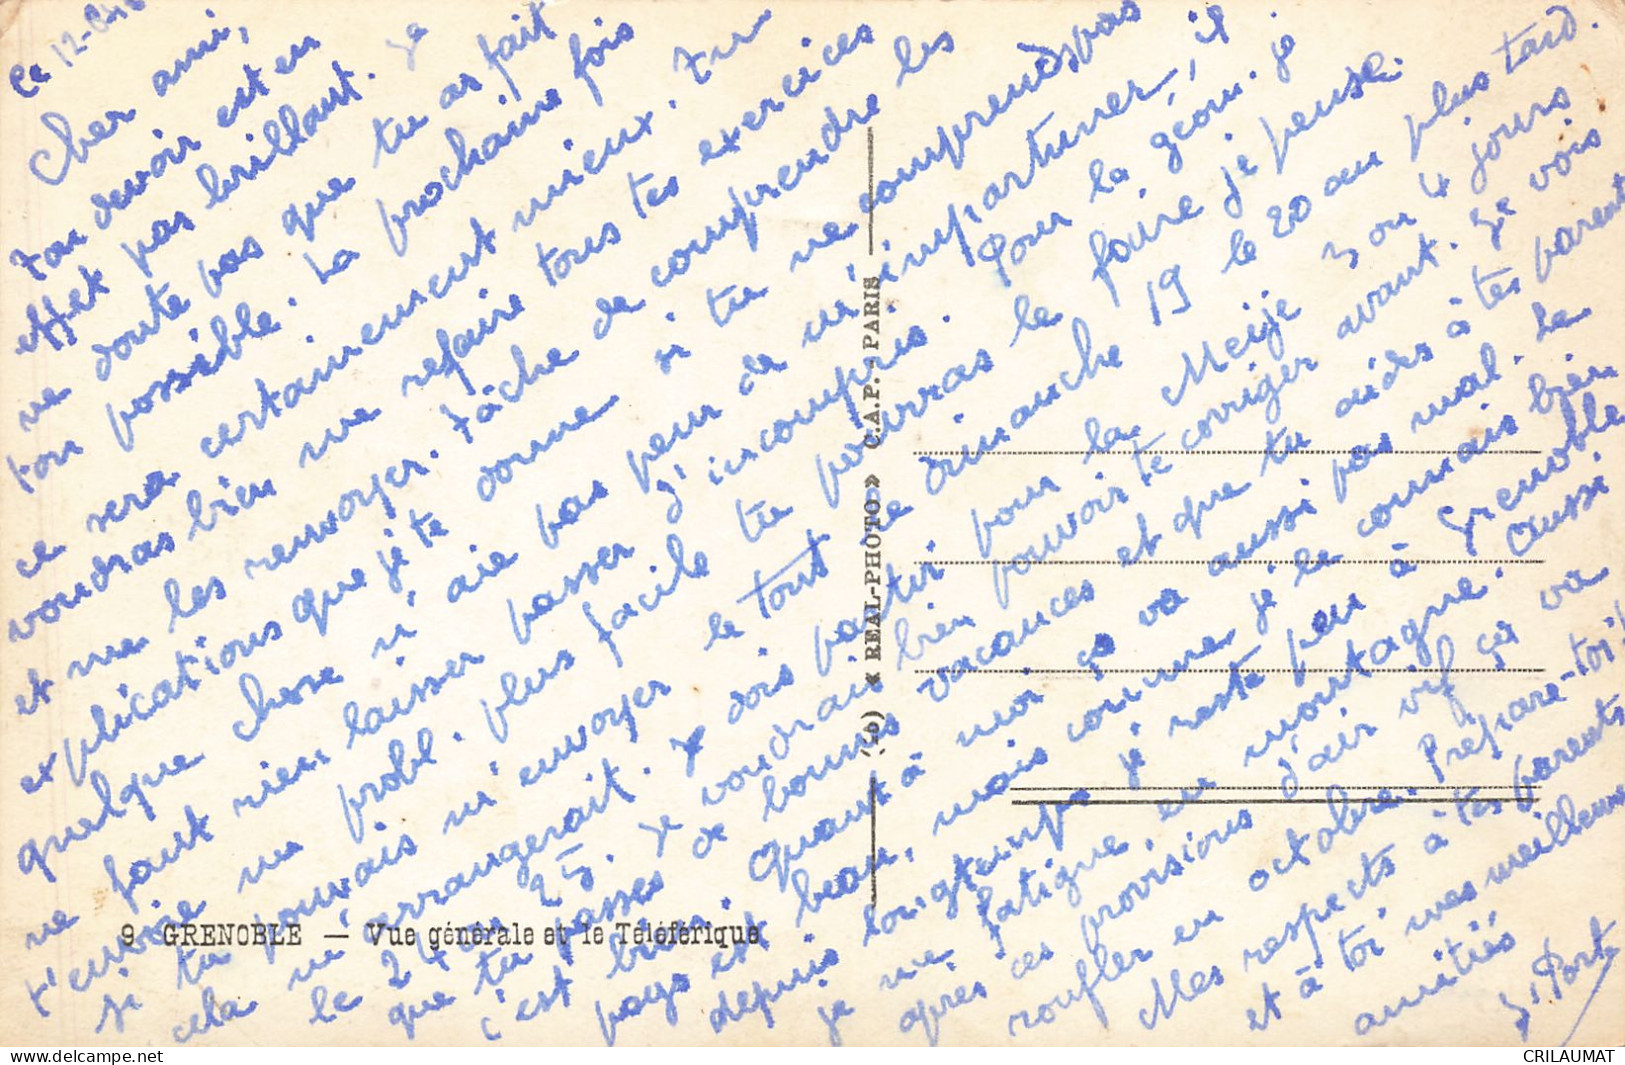 Ce 12-
Cher ami,
Ton devoir est en
effet pas brillant. Je
ne doute pas que tu as fait
ton possible. La prochaine fois
ce sera certainement mieux. Tu
voudras bien me refaire tous tes exercices
et me les renvoyer. Tâche de comprendre les
explications que je te donne si tu ne comprends pas
quelque chose n'aie pas peur de m'importuner, il
ne faut rien laisser passer d'incompris. Pour la géom. je
t'envoie un probl. plus facile tu pourras le faire je pense.
si tu pouvais m'envoyer le tout le dimanche 19 le 20 au plus tard.
cela m'arrangerait. Je dois partir pour la Meije 3 ou 4 jours
le 24 ou 25. Je voudrais bien pouvoir te corriger avant. Je vois
que tu passes de bonnes vacances et que tu aides à tes parents
c'est bien. Quant à moi ça va aussi pas mal. Le
pays est beau, mais comme je le connais bien
depuis longtemps je reste peu à Grenoble
je me fatigue, en montagne. Aussi
après ces provisions d'air vif ça va
ronfler en octobre. Prépare-toi!
Mes respects à tes parents
et à toi mes meilleures
amitiés
J. Porte
9 GRENOBLE — Vue générale et le Téléférique
(10) « REAL-PHOTO » C.A.P. - PARIS
CRILAUMAT